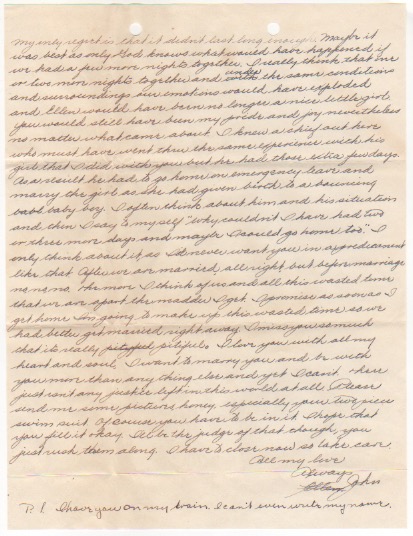 my only regret is that it didn't last long enough. Maybe it
was best as only God knows what would have happened if
we had a few more nights together. I really think that one
or two more nights together and under the same conditions
and surroundings our emotions would have exploded
and Ellen would have been no longer a nice little girl.
You would still have been my pride and joy nevertheless
no matter what came about. I knew a chief out here
who must have went thru the same experience with his
girl that I did with you but he had those extra few days.
As a result he had to go home on emergency leave and
marry the girl as she had given birth to a bouncing
baby boy. I often think about him and his situation
and then I say to myself "Why couldn't I have had two
or three more days and maybe I could go home too." I
only think about it as I'd never want you in a predicament
like that. After we are married, all right but before marriage
no, no, no. The more I think of us and all this wasted time
that we are apart the madder I get. I promise as soon as I
get home I'm going to make up this wasted time so we
had better get married right away. I miss you so much
that it's really pitiful. I love you with all my
heart and soul, I want to marry you and be with
you more than anything else and yet I can't. There
just isn't any justice left in this world at all. Please
send me some pictures honey, especially your two piece
swim suit. Of course you have to be in it. I hope that
you fill it okay. I'll be the judge of that though, you
just rush them along. I have to close now so take care.
All my love
Always
John
P.S. I have you on my brain. I can't even write my name.